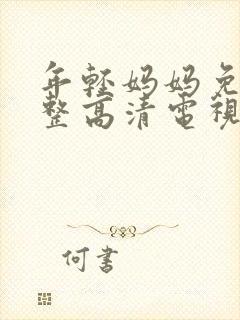 年輕妈妈免
整高清電視
何書